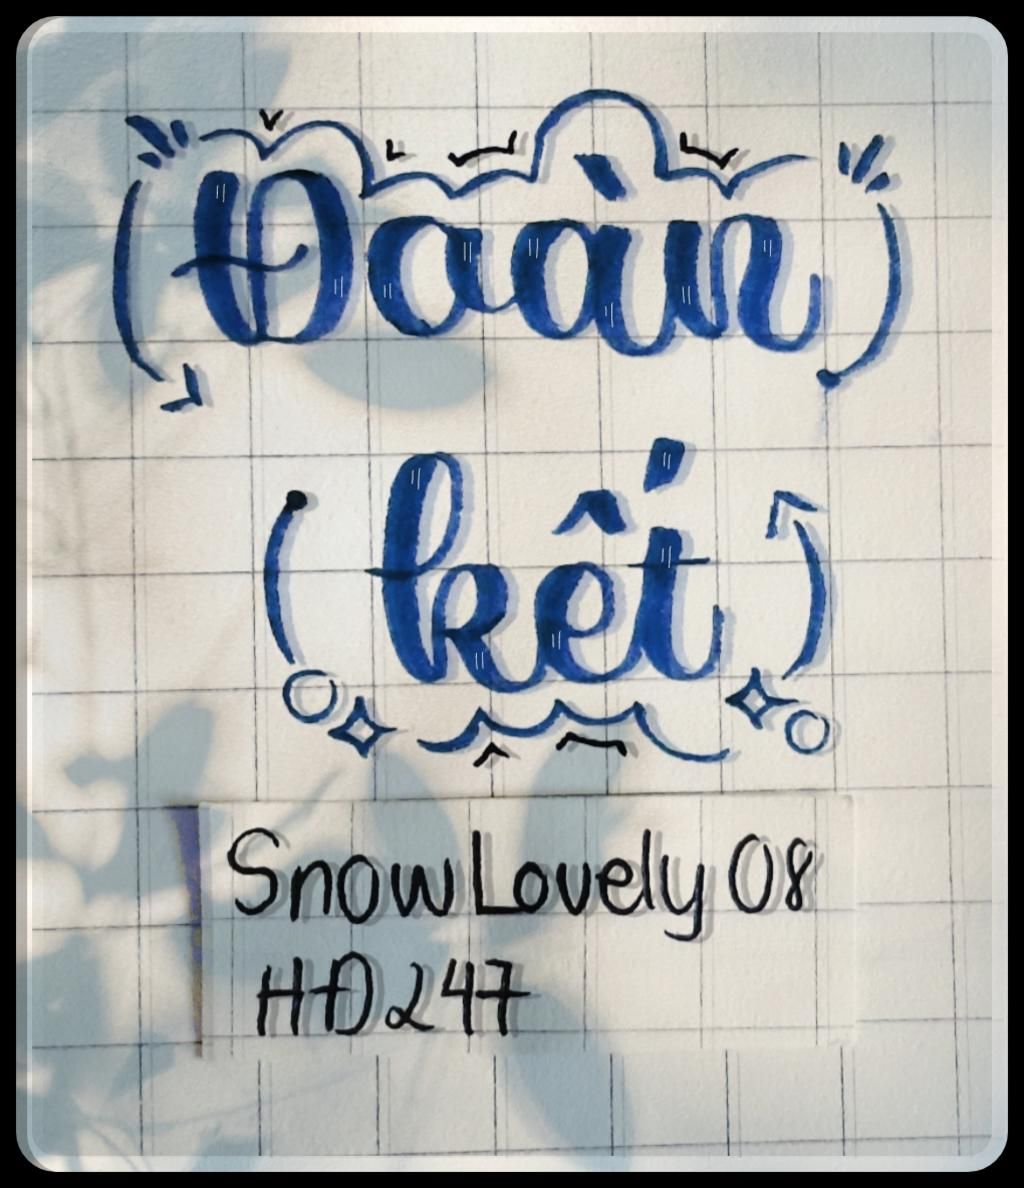 Đoàn
kết
Snow Lovely 08
HĐ 247